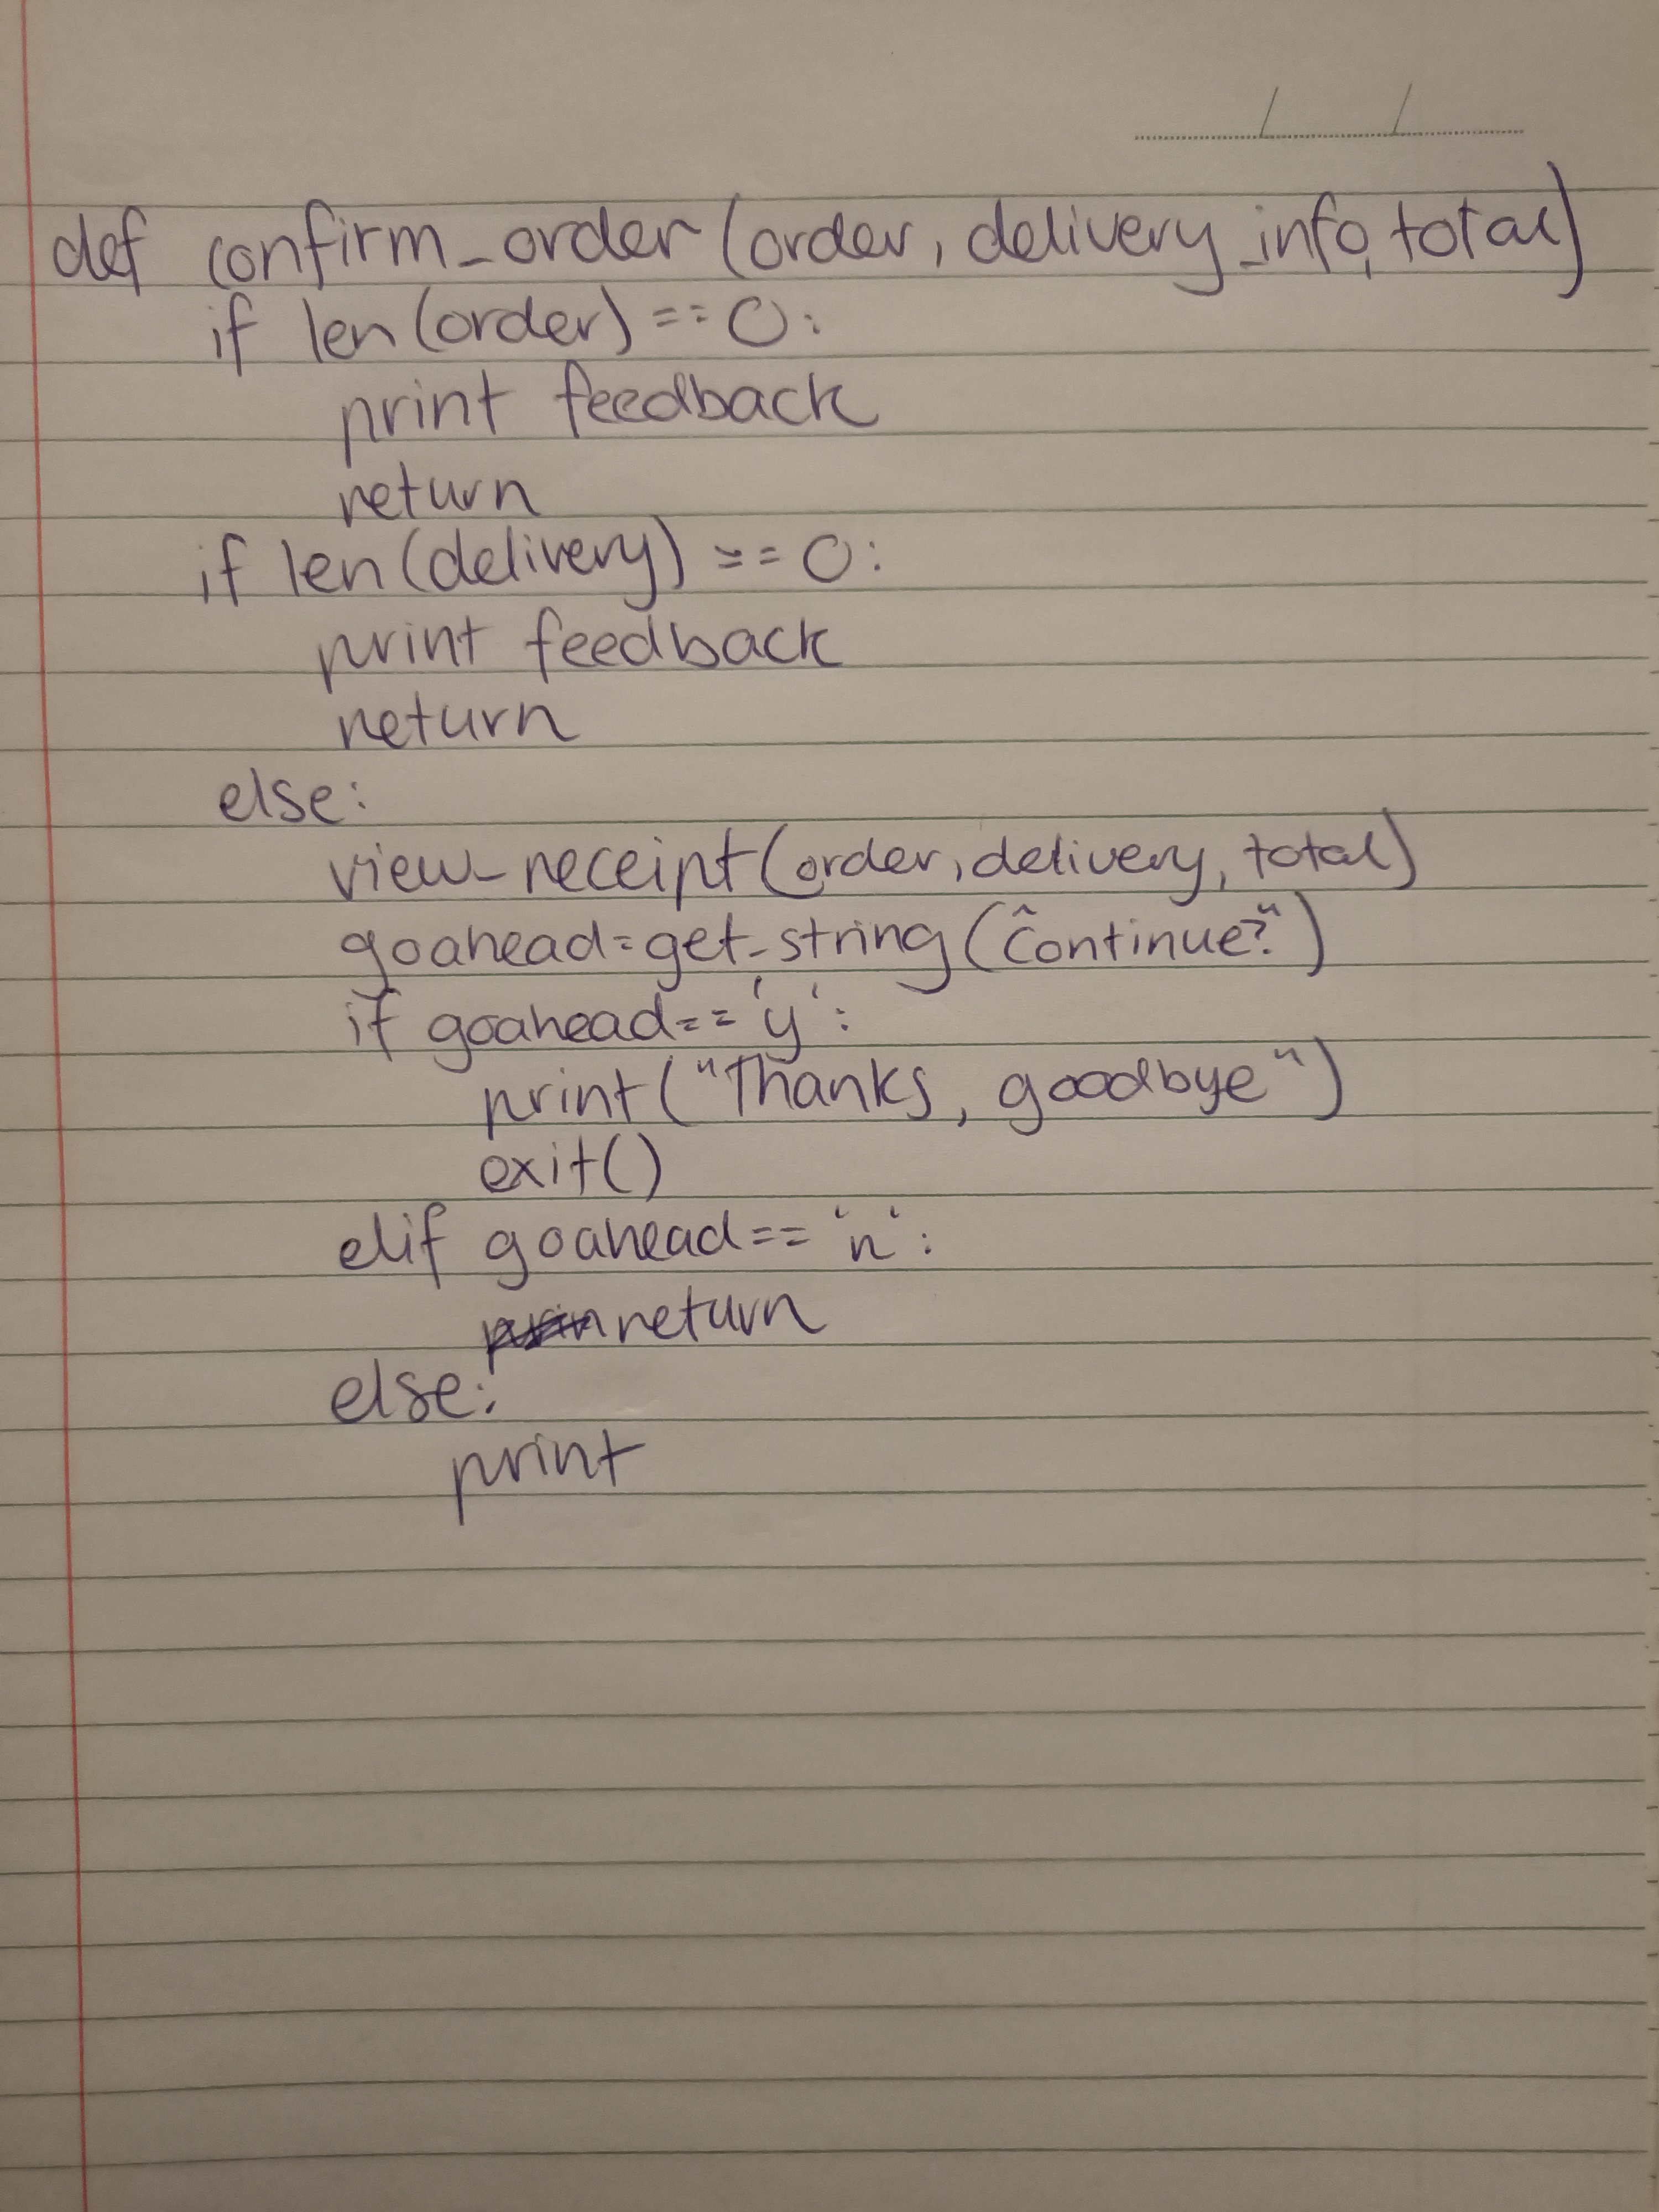 def confirm_order (order, delivery_info, total)
if len (order) == 0:
print feedback
return
if len (delivery) == 0:
print feedback
return
else:
view_receipt (order, delivery, total)
goahead = get_string ("Continue?")
if goahead == 'y':
print ("Thanks, goodbye")
exit()
elif goahead == 'n':
return
else:
print